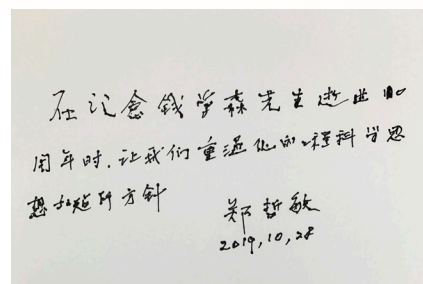 在纪念钱学森先生逝世10
周年时,让我们重温他的工程科学思
想和建所方针
郑哲敏
2019,10,28